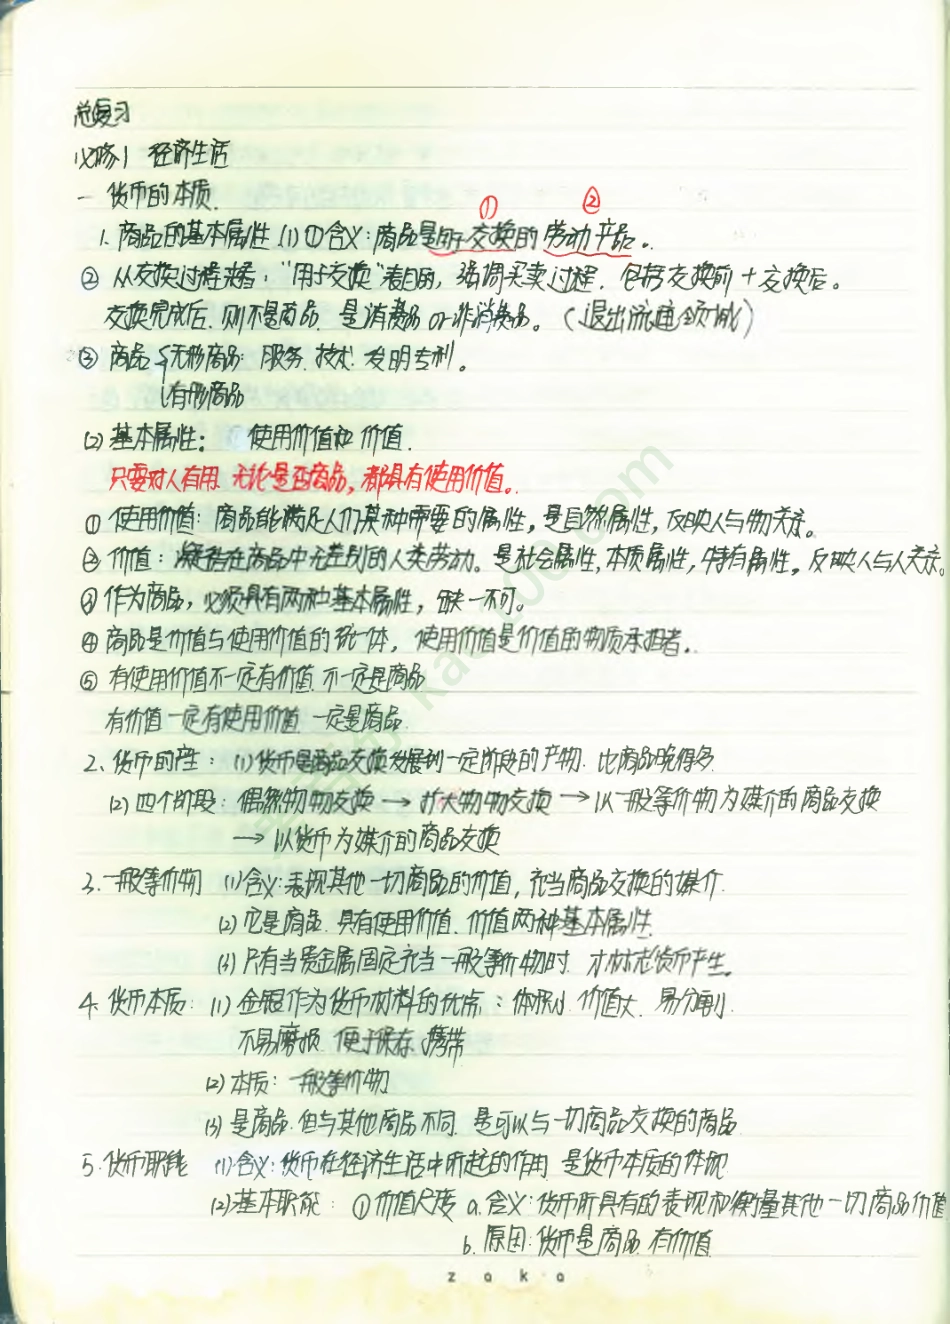 总复习
必修1 经济生活
一 货币的本质.
① ②
1. 商品的基本属性 (1) ①含义: 商品是用于交换的劳动产品。
② 从交换过程来看: "用于交换"表目的, 强调买卖过程, 包括交换前+交换后。
交换完成后, 则不是商品, 是消费品 or 非消费品。(退出流通领域)
③ 商品 { 无形商品: 服务. 技术. 发明专利。
有形商品
(2) 基本属性: 使用价值和价值.
只要对人有用. 无论是否商品, 都具有使用价值。
① 使用价值: 商品能满足人们某种需要的属性, 是自然属性, 反映人与物关系。
② 价值: 凝结在商品中无差别的人类劳动. 是社会属性, 本质属性, 特有属性。反映人与人关系。
③ 作为商品, 必须具有两种基本属性, 缺一不可。
④ 商品是价值与使用价值的统一体, 使用价值是价值的物质承担者。
⑤ 有使用价值不一定有价值. 不一定是商品
有价值一定有使用价值 一定是商品.
2. 货币的产生: (1) 货币是商品交换发展到一定阶段的产物. 比商品晚得多.
(2) 四个阶段: 偶然物物交换 → 扩大物物交换 → 以一般等价物为媒介的商品交换
→ 以货币为媒介的商品交换
3. 一般等价物 (1) 含义: 表现其他一切商品的价值, 充当商品交换的媒介.
(2) 它是商品. 具有使用价值. 价值两种基本属性.
(3) 只有当贵金属固定充当一般等价物时. 才标志货币产生。
4. 货币本质: (1) 金银作为货币材料的优点: 体积小. 价值大. 易分割.
不易磨损. 便于保存. 携带
(2) 本质: 一般等价物
(3) 是商品. 但与其他商品不同. 是可以与一切商品交换的商品
5. 货币职能 (1) 含义: 货币在经济生活中所起的作用. 是货币本质的体现
(2) 基本职能: ① 价值尺度 a. 含义: 货币所具有的表现和衡量其他一切商品价值
b. 原因: 货币是商品. 有价值
zoko